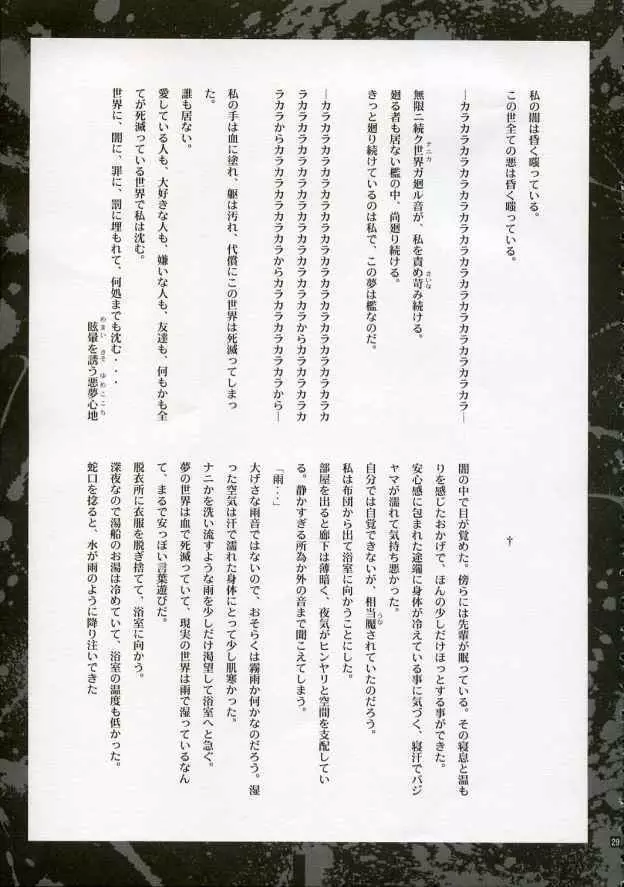 私の闇は昏く嗤っている。
この世全ての悪は昏く嗤っている。
―カラカラカラカラカラカラカラカラカラカラカラカラカラカラカラ―
無限ニ続ク世界ガ廻ル音が、私を責め苛み続ける。
廻る者も居ない檻の中、尚廻り続ける。
きっと廻り続けているのは私で、この夢は檻なのだ。
―カラカラカラカラカラカラカラカラカラカラカラカラカラカラカラカ
ラカラカラカラカラカラカラカラカラカラからカラカラカラカラカ
ラカラからカラカラカラカラカラからカラカラカラカラカラから―
私の手は血に塗れ、躯は汚れ、代償にこの世界は死滅ってしまっ
た。
誰も居ない。
愛している人も、大好きな人も、嫌いな人も、友達も、何もかも全
てが死滅っている世界で私は沈む。
世界に、闇に、罪に、罰に埋もれて、何処までも沈む・・・
眩暈を誘う悪夢心地
†
闇の中で目が覚めた。傍らには先輩が眠っている。その寝息と温も
りを感じたおかげで、ほんの少しだけほっとする事ができた。
安心感に包まれた途端に身体が冷えている事に気づく、寝汗でパジ
ヤマが濡れて気持ち悪かった。
自分では自覚できないが、相当魘されていたのだろう。
私は布団から出て浴室に向かうことにした。
部屋を出ると廊下は薄暗く、夜気がヒンヤリと空間を支配してい
る。静かすぎる所為か外の音まで聞こえてしまう。
「雨・・・」
大げさな雨音ではないので、おそらくは霧雨か何かなのだろう。湿
った空気は汗で濡れた身体にとって少し肌寒かった。
ナニかを洗い流すような雨を少しだけ渇望して浴室へと急ぐ。
夢の世界は血で死滅っていて、現実の世界は雨で湿っているなん
て、まるで安っぽい言葉遊びだ。
脱衣所に衣服を脱ぎ捨てて、浴室に向かう。
深夜なので湯船のお湯は冷めていて、浴室の温度も低かった。
蛇口を捻ると、水が雨のように降り注いできた
29